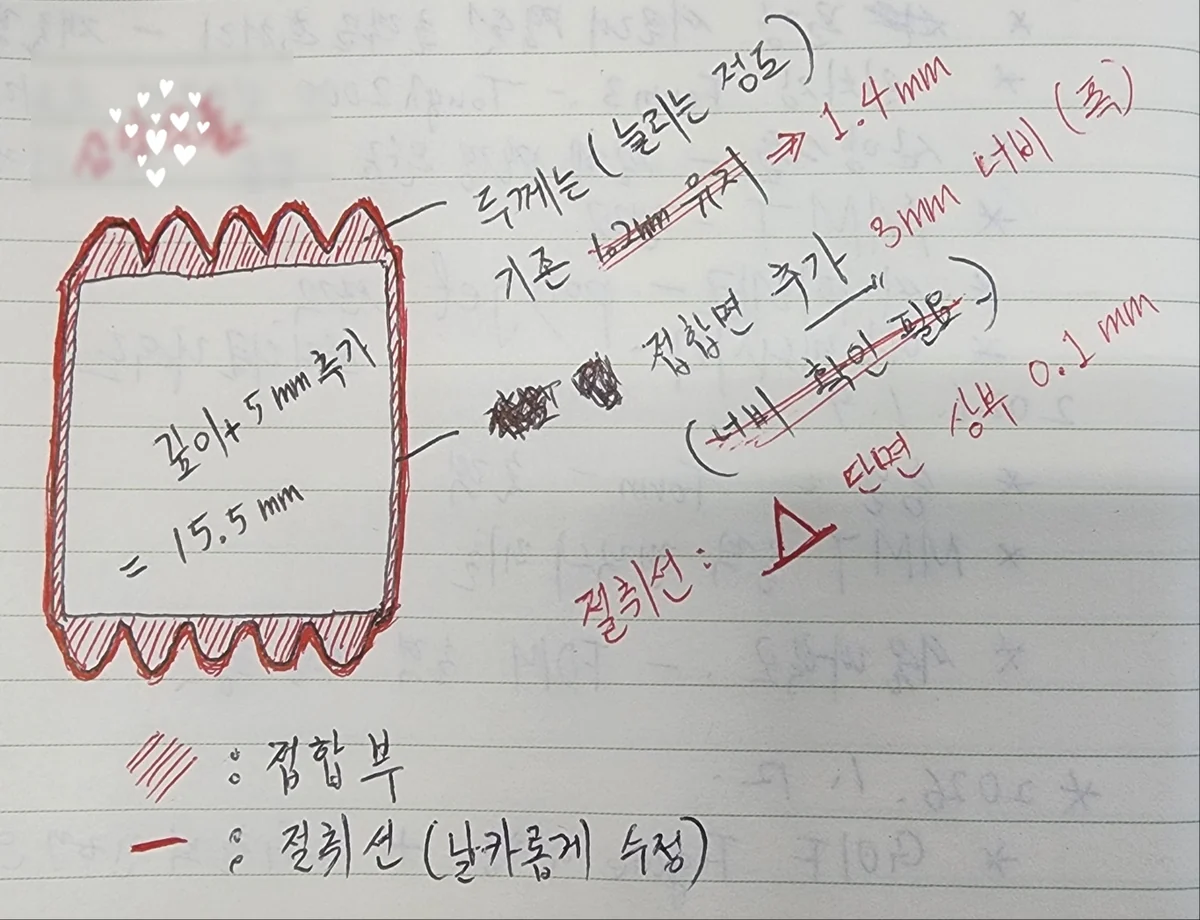 두께는 (늘리는 정도)
기존 1.2mm 유지 ⇒ 1.4mm
접합면 추가 3mm 너비 (폭)
(너비 확인 필요)
깊이+5mm추가
= 15.5mm
절취선 : △ 단면 상부 0.1mm
: 접합부
: 절취선 (날카롭게 수정)